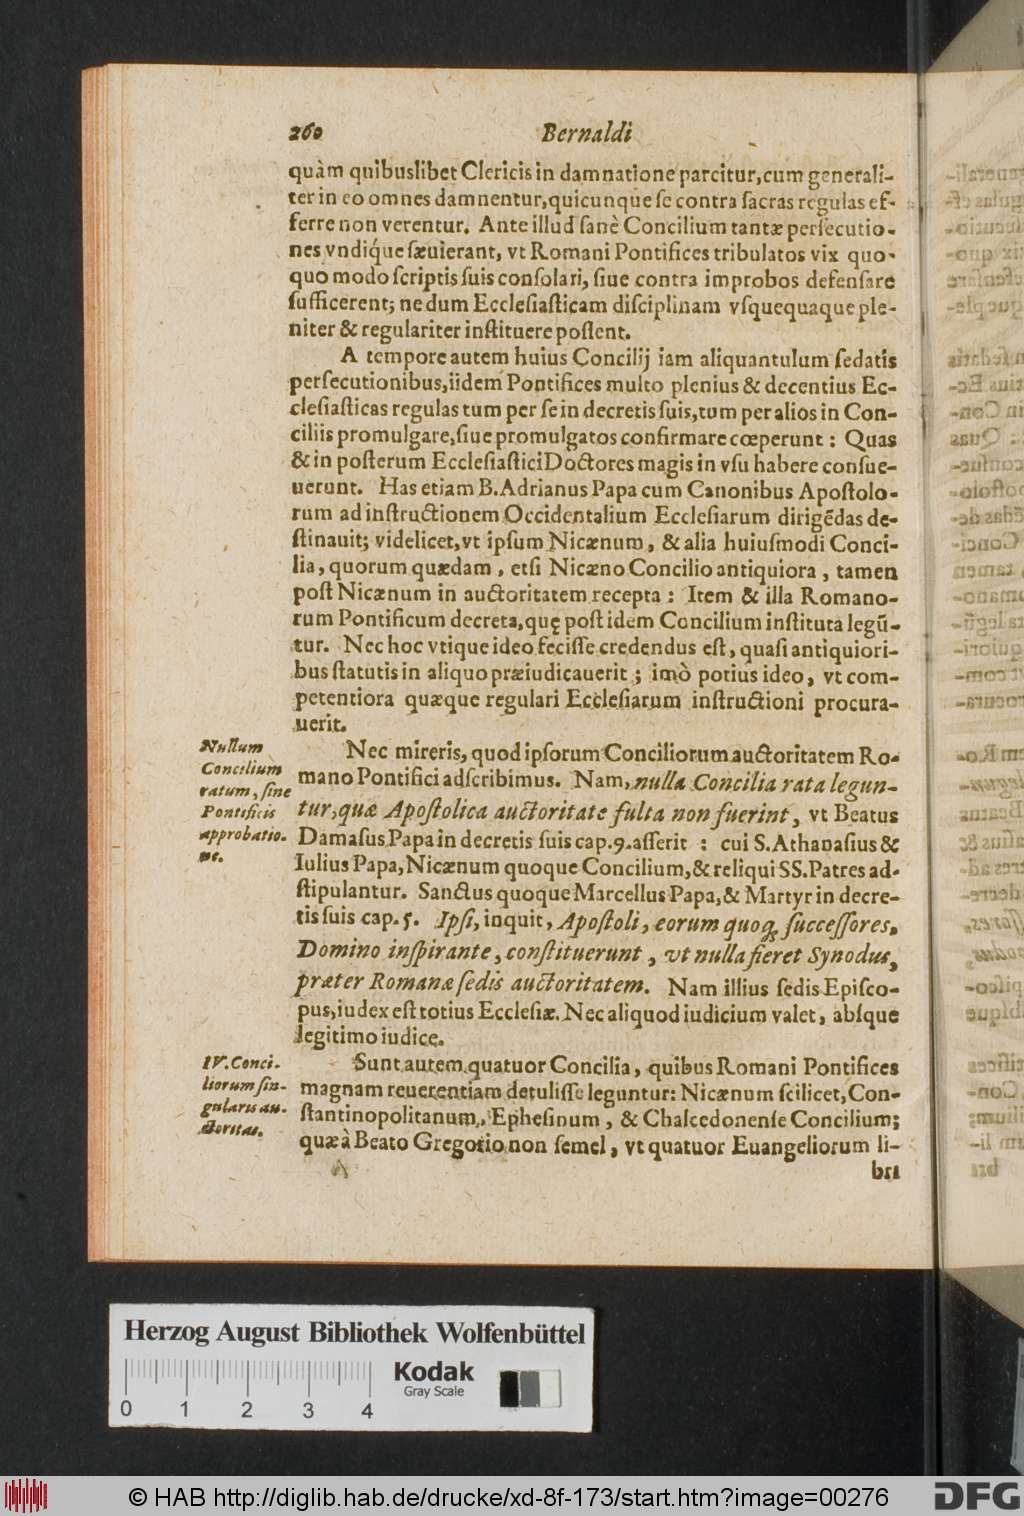 260 Bernaldi
quàm quibuslibet Clericis in damnatione parcitur, cum generali-
ter in eo omnes damnentur, quicunque ſe contra ſacras regulas ef-
ferre non verentur. Ante illud ſanè Concilium tantæ perſecutio-
nes vndíque ſæuierant, vt Romani Pontifices tribulatos vix quo-
quo modo ſcriptis ſuis conſolari, ſiue contra improbos defenſare
ſufficerent; ne dum Eccleſiaſticam diſciplinam vſquequaque ple-
niter & regulariter inſtituere poſſent.
A tempore autem huius Concilij iam aliquantulum ſedatis
perſecutionibus, iidem Pontifices multo plenius & decentius Ec-
cleſiaſticas regulas tum per ſe in decretis ſuis, tum per alios in Con-
ciliis promulgare, ſiue promulgatos confirmare cœperunt: Quas
& in poſterum Eccleſiaſtici Doctores magis in vſu habere conſue-
uerunt. Has etiam B. Adrianus Papa cum Canonibus Apoſtolo-
rum ad inſtructionem Occidentalium Eccleſiarum dirigẽdas de-
ſtinauit; videlicet, vt ipſum Nicænum, & alia huiuſmodi Conci-
lia, quorum quædam, etſi Nicæno Concilio antiquiora, tamen
poſt Nicænum in auctoritatem recepta: Item & illa Romano-
rum Pontificum decreta, quę poſt idem Concilium inſtituta legũ-
tur. Nec hoc vtique ideo feciſſe credendus eſt, quaſi antiquiori-
bus ſtatutis in aliquo præiudicauerit; imò potius ideo, vt com-
petentiora quæque regulari Eccleſiarum inſtructioni procura-
uerit.
Nullum
Concilium
ratum, ſine
Pontificis
approbatio-
ne.
Nec mireris, quod ipſorum Conciliorum auctoritatem Ro-
mano Pontifici adſcribimus. Nam, nulla Concilia rata legun-
tur, quæ Apoſtolica auctoritate fulta non fuerint, vt Beatus
Damaſus Papa in decretis ſuis cap. 9. aſſerit: cui S. Athanaſius &
Iulius Papa, Nicænum quoque Concilium, & reliqui SS. Patres ad-
ſtipulantur. Sanctus quoque Marcellus Papa, & Martyr in decre-
tis ſuis cap. 5. Ipſi, inquit, Apoſtoli, eorum quoq; ſucceſſores,
Domino inſpirante, conſtituerunt, vt nulla fieret Synodus,
præter Romanæ ſedis auctoritatem. Nam illius ſedis Epiſco-
pus, iudex eſt totius Eccleſiæ. Nec aliquod iudicium valet, abſque
legitimo iudice.
IV. Conci-
liorum ſin-
gularis au-
ctoritas.
Sunt autem quatuor Concilia, quibus Romani Pontifices
magnam reuerentiam detuliſſe leguntur: Nicænum ſcilicet, Con-
ſtantinopolitanum, Epheſinum, & Chalcedonenſe Concilium;
quæ à Beato Gregorio non ſemel, vt quatuor Euangeliorum li-
bri
Herzog August Bibliothek Wolfenbüttel
Kodak
Gray Scale
0 1 2 3 4
© HAB http://diglib.hab.de/drucke/xd-8f-173/start.htm?image=00276
DFG